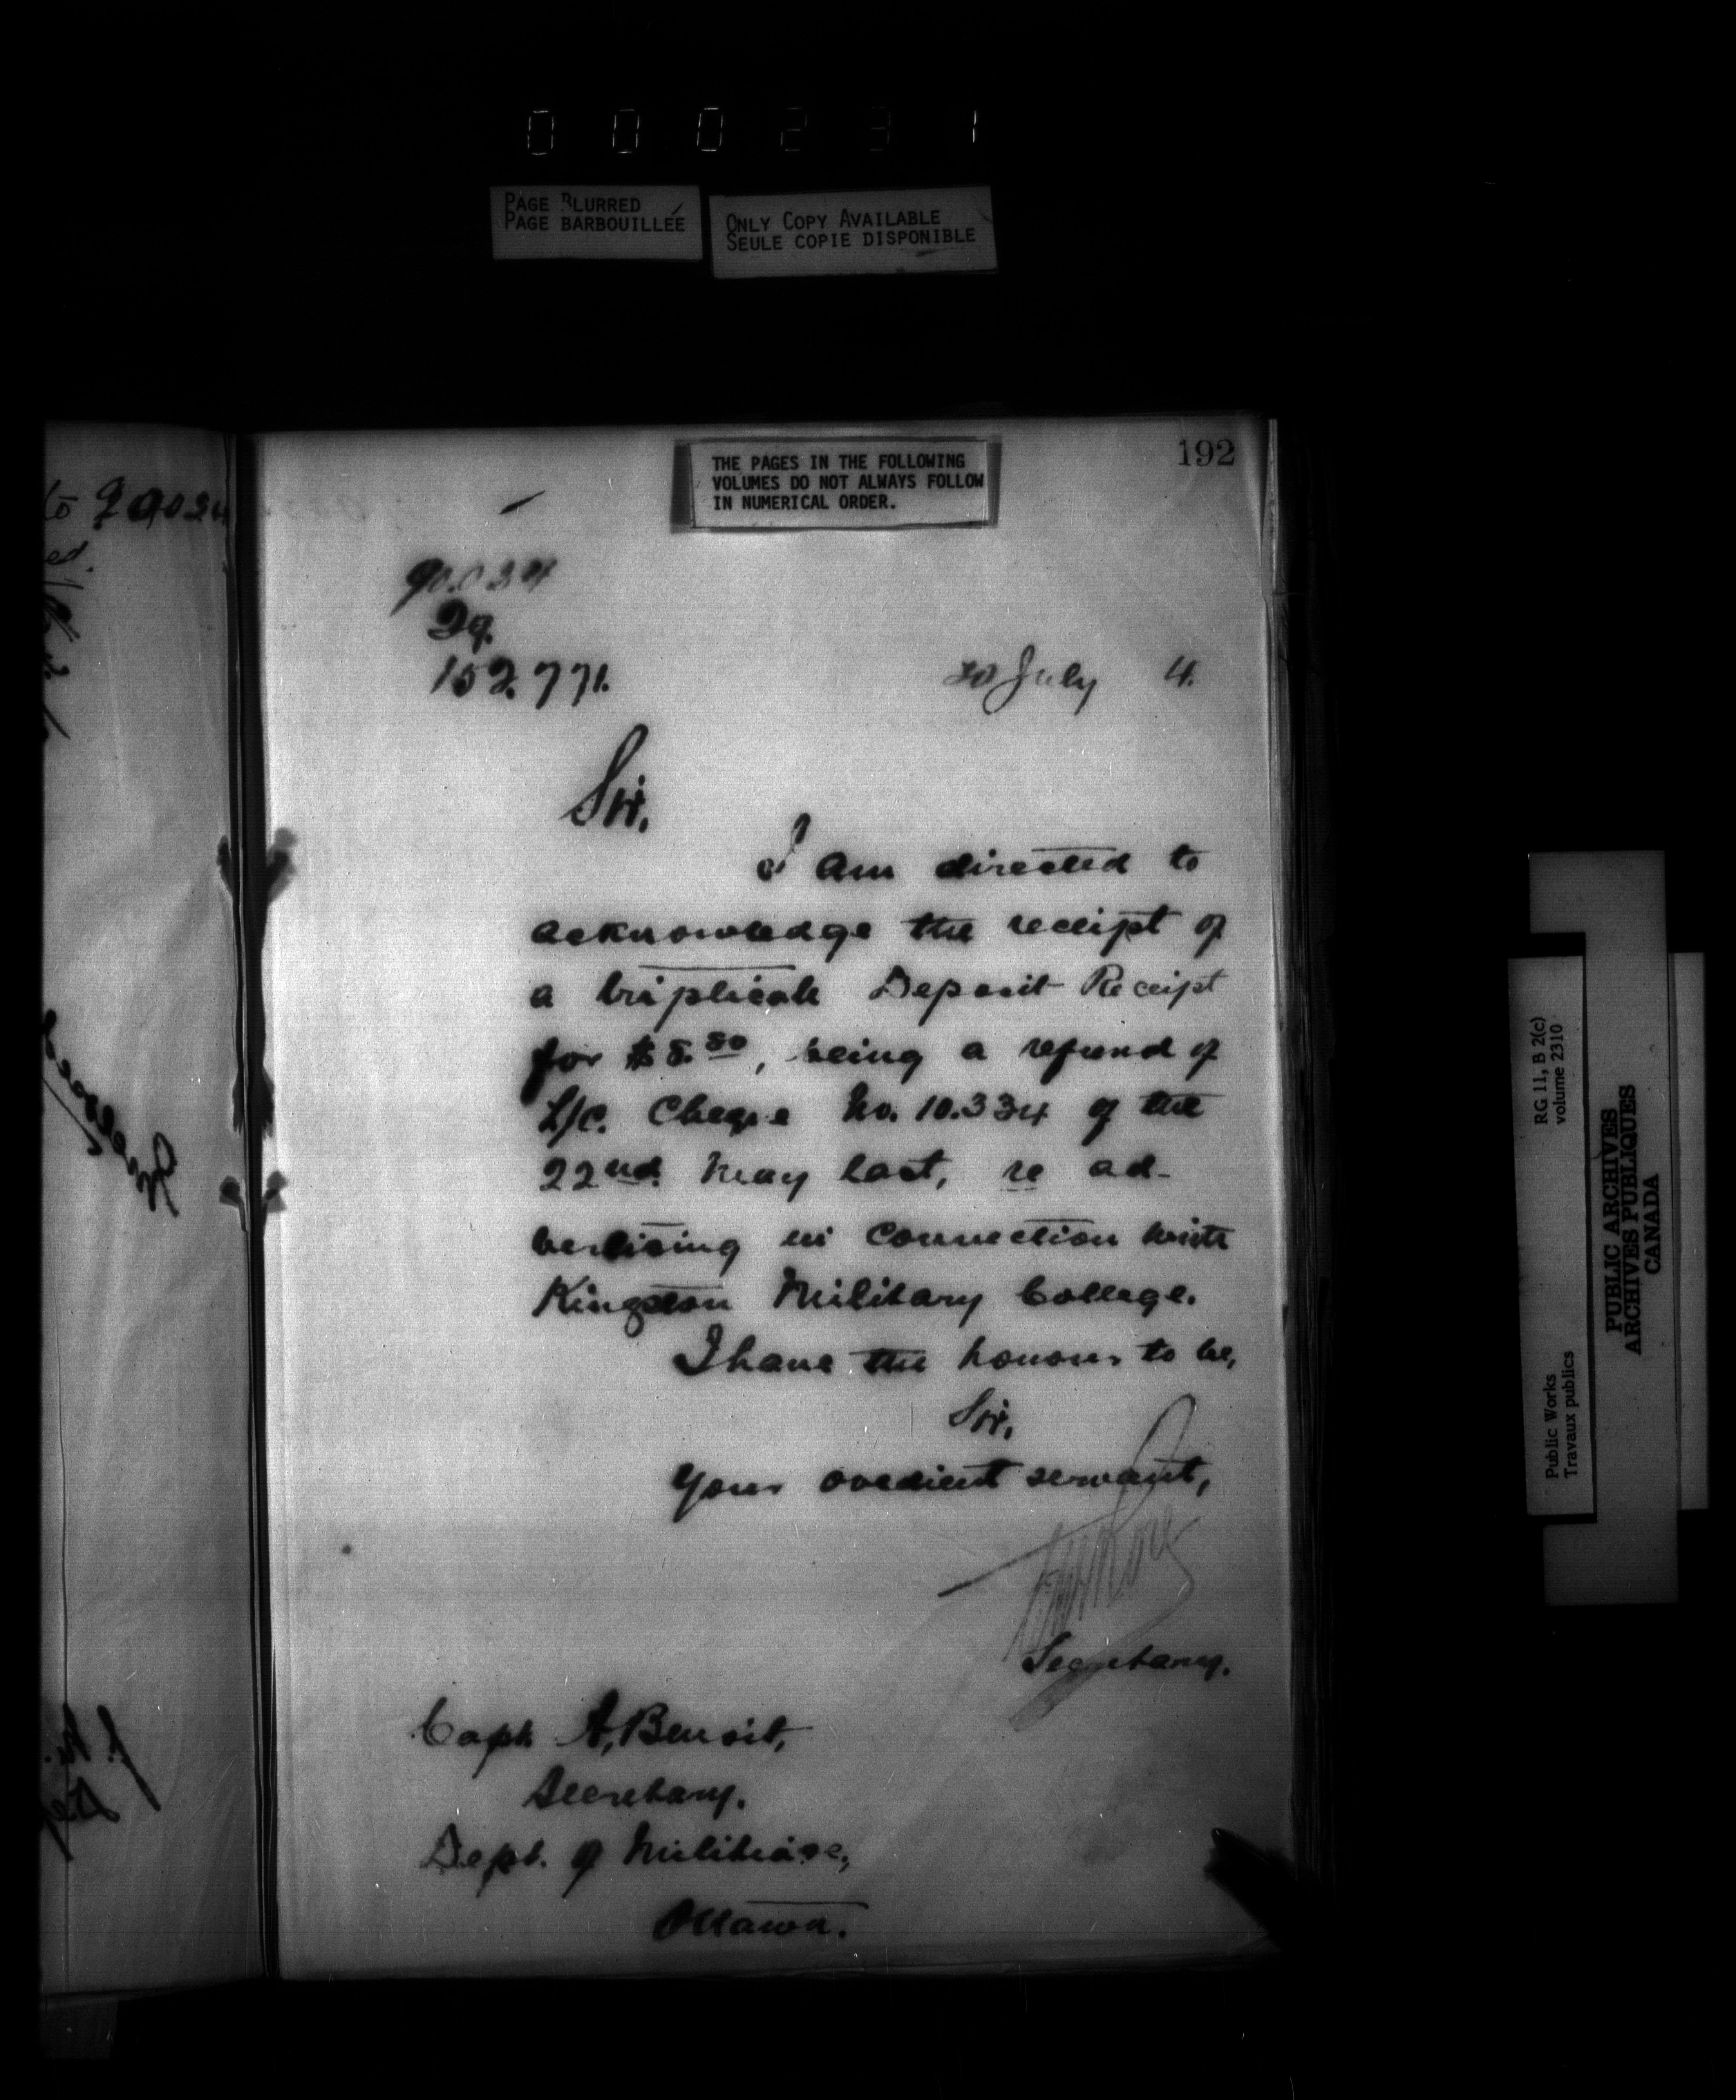 000231
PAGE BLURRED
PAGE BARBOUILLÉE
ONLY COPY AVAILABLE
SEULE COPIE DISPONIBLE
192
THE PAGES IN THE FOLLOWING
VOLUMES DO NOT ALWAYS FOLLOW
IN NUMERICAL ORDER.
90.034
152.771.
20 July 4.
Sir,
I am directed to
acknowledge the receipt of
a triplicate Deposit Receipt
for $8.80, being a refund of
L/C. Cheque No. 10.334 of the
22nd. May last, re ad-
vertising in connection with
Kingston Military College.
I have the honour to be,
Sir,
Your obedient servant,
Secretary.
Capt. A. Benoit,
Secretary.
Dept. of Militia &c,
Ottawa.
RG 11, B 2(c)
volume 2310
Public Works
Travaux publics
PUBLIC ARCHIVES
ARCHIVES PUBLIQUES
CANADA